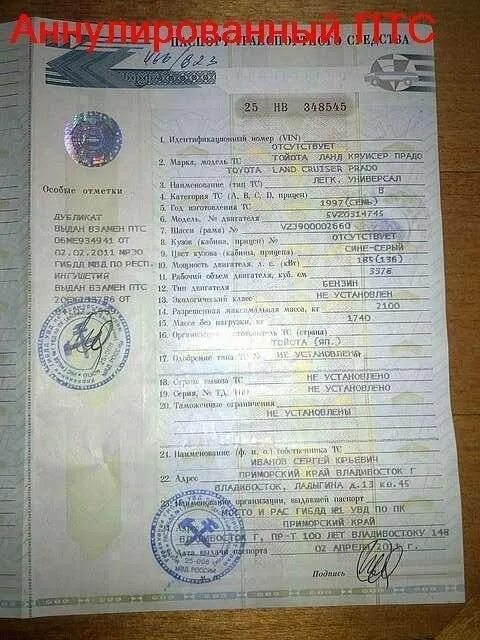 Аннулированный ПТС
ПАСПОРТ ТРАНСПОРТНОГО СРЕДСТВА
25 НВ 348545
1. Идентификационный номер (VIN)
ОТСУТСТВУЕТ
2. Марка, модель ТС ТОЙОТА ЛАНД КРУИСЕР ПРАДО
TOYOTA LAND CRUISER PRADO
3. Наименование (тип ТС) ЛЕГК. УНИВЕРСАЛ
4. Категория ТС (А, В, С, D, прицеп) В
5. Год изготовления ТС 1997 (СЕМЬ)
6. Модель, № двигателя 5VZ0314745
7. Шасси (рама) № VZJ900002660
8. Кузов (кабина, прицеп) № ОТСУТСТВУЕТ
9. Цвет кузова (кабины, прицепа) СИНЕ-СЕРЫЙ
10. Мощность двигателя, л. с. (кВт) 185(136)
11. Рабочий объем двигателя, куб. см 3378
12. Тип двигателя БЕНЗИН
13. Экологический класс НЕ УСТАНОВЛЕН
14. Разрешенная максимальная масса, кг 2100
15. Масса без нагрузки, кг 1740
16. Организация-изготовитель ТС (страна)
ТОЙОТА (ЯП.)
17. Одобрение типа ТС № НЕ УСТАНОВЛЕНО
18. Страна вывоза ТС НЕ УСТАНОВЛЕНО
19. Серия, № ТД, НЕ УСТАНОВЛЕНО
20. Таможенные ограничения
НЕ УСТАНОВЛЕНЫ
21. Наименование (ф. и. о.) собственника ТС
ИВАНОВ СЕРГЕЙ ЮРЬЕВИЧ
22. Адрес ПРИМОРСКИЙ КРАЙ ВЛАДИВОСТОК Г
ВЛАДИВОСТОК, ЛАДЫГИНА д.13 кв.45
23. Наименование организации, выдавшей паспорт
МОТО И РАС ГИБДД №1 УВД ПО ПК
ПРИМОРСКИЙ КРАЙ
ВЛАДИВОСТОК Г, ПР-Т 100 ЛЕТ ВЛАДИВОСТОКУ 148
Дата выдачи паспорта 02 АПРЕЛЯ
Подпись
Особые отметки
ДУБЛИКАТ
ВЫДАН ВЗАМЕН ПТС
06МЕ934941 ОТ
02.02.2011 МРЭО
ГИБДД МВД ПО РЕСП.
ИНГУШЕТИЯ
ВЫДАН ВЗАМЕН ПТС
МВД РОССИИ